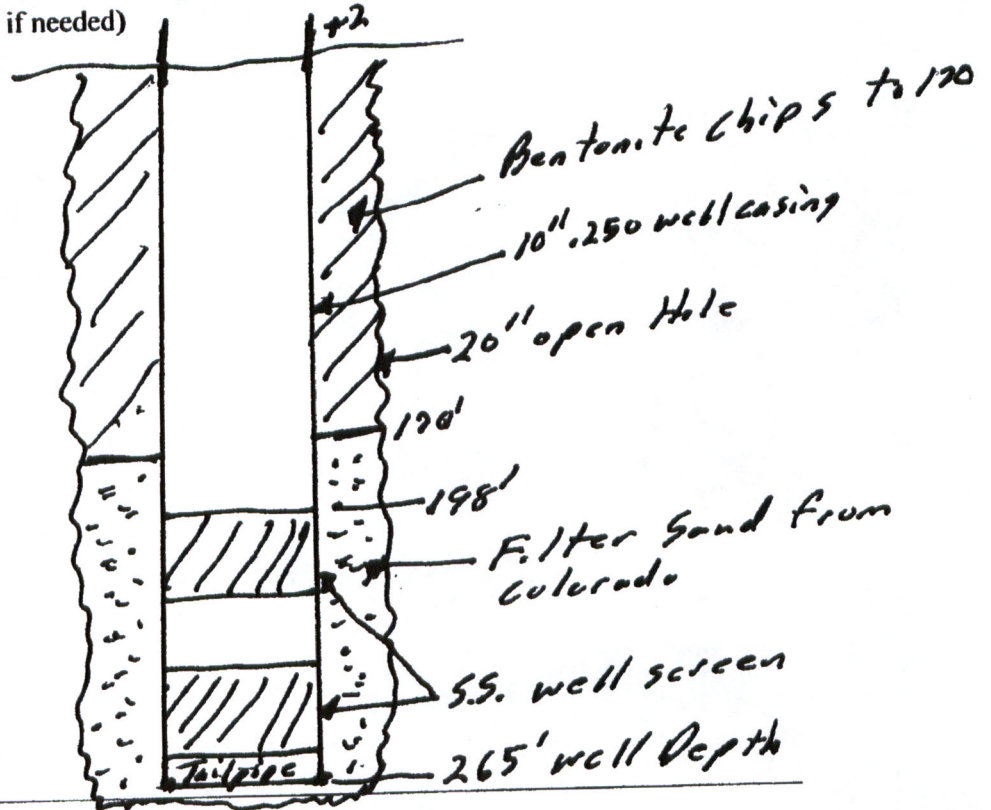 if needed)
+2
Bentonite chips to 120
10" .250 well casing
20" open Hole
120'
198'
Filter Sand from
Colorado
S.S. well screen
Tailpipe
265' well Depth